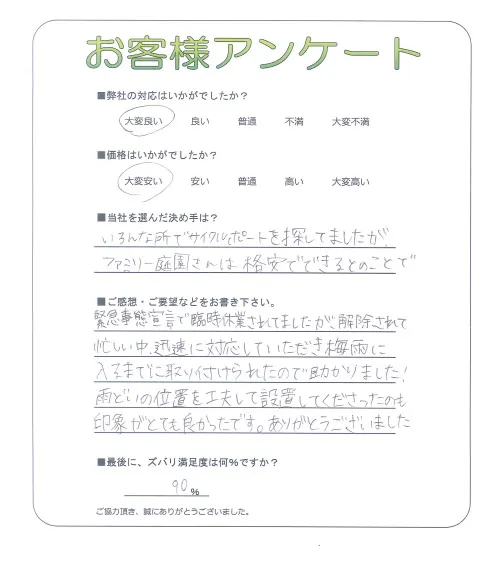 お客様アンケート
■弊社の対応はいかがでしたか？
大変良い 良い 普通 不満 大変不満
■価格はいかがでしたか？
大変安い 安い 普通 高い 大変高い
■当社を選んだ決め手は？
いろんな所でサイクルポートを探してましたが、
ファミリー庭園さんは格安でできるとのことで
■ご感想・ご要望などをお書き下さい。
緊急事態宣言で臨時休業されてましたが、解除されて
忙しい中、迅速に対応していただき梅雨に
入るまでに取り付けられたので助かりました！
雨どいの位置を工夫して設置してくださったのも
印象がとても良かったです。ありがとうございました
■最後に、ズバリ満足度は何％ですか？
90％
ご協力頂き、誠にありがとうございました。